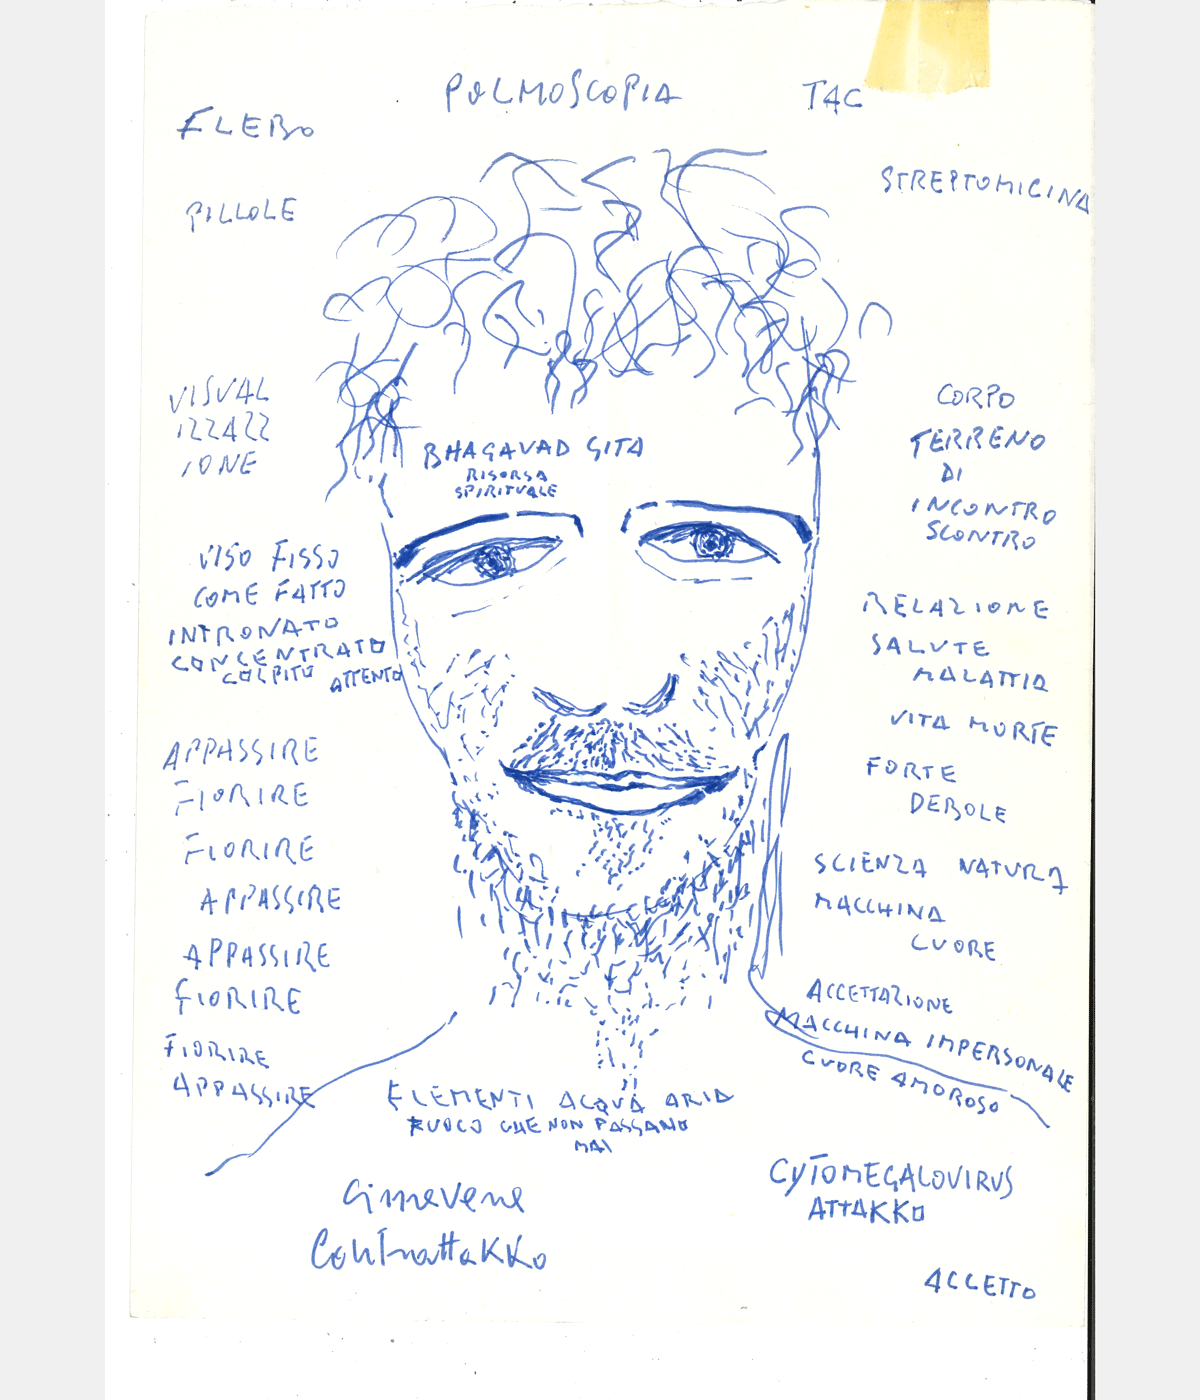 PULMOSCOPIA
TAC
FLEBO
STREPTOMICINA
PILLOLE
VISUAL
IZZAZZ
IONE
BHAGAVAD GITA
RISORSA
SPIRITUALE
CORPO
TERRENO
DI
INCONTRO
SCONTRO
VISO FISSO
COME FATTO
INTRONATO
CONCENTRATO
COLPITO ATTENTO
RELAZIONE
SALUTE
MALATTIA
VITA MORTE
APPASSIRE
FIORIRE
FIORIRE
APPASSIRE
APPASSIRE
FIORIRE
FIORIRE
APPASSIRE
FORTE
DEBOLE
SCIENZA NATURA
MACCHINA
CUORE
ACCETTAZIONE
MACCHINA IMPERSONALE
CUORE AMOROSO
ELEMENTI ACQUA ARIA
FUOCO CHE NON PASSANO
MAI
Cimevene
ContrattaKKo
CYTOMEGALOVIRUS
ATTAKKO
ACCETTO